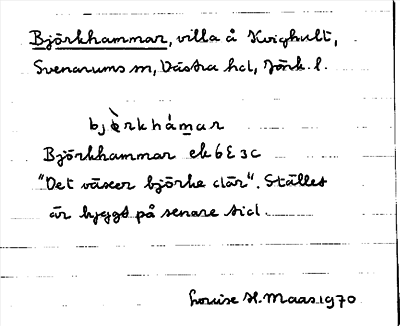 Björkhammar, villa å Kvighult,
Svenarums sn, Västra hd, Jönk. l.
bjö̀rkháma̲r
Björkhammar ek 6E 3c
"Det växer björke där". Stället
är byggt på senare tid.
Louise H. Maas 1970